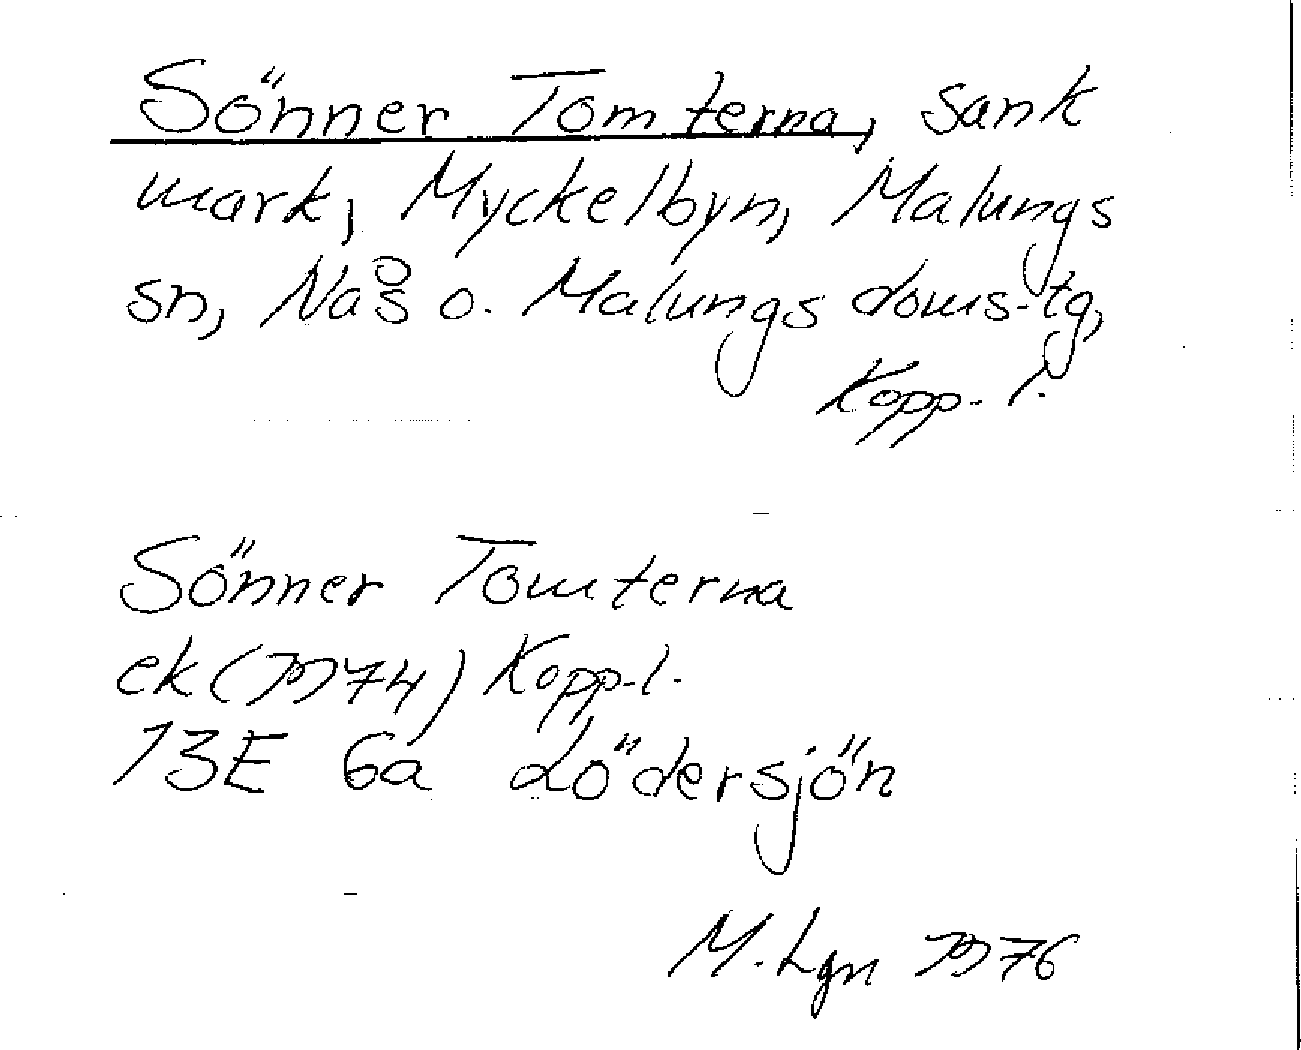 Sönner Tomterna, sank
mark, Myckelbyn, Malungs
sn, Nås o. Malungs doms-tg,
Kopp. l.
Sönner Tomterna
ek (1974) Kopp.l.
13E 6a Lödersjön
M. Lgn 1976